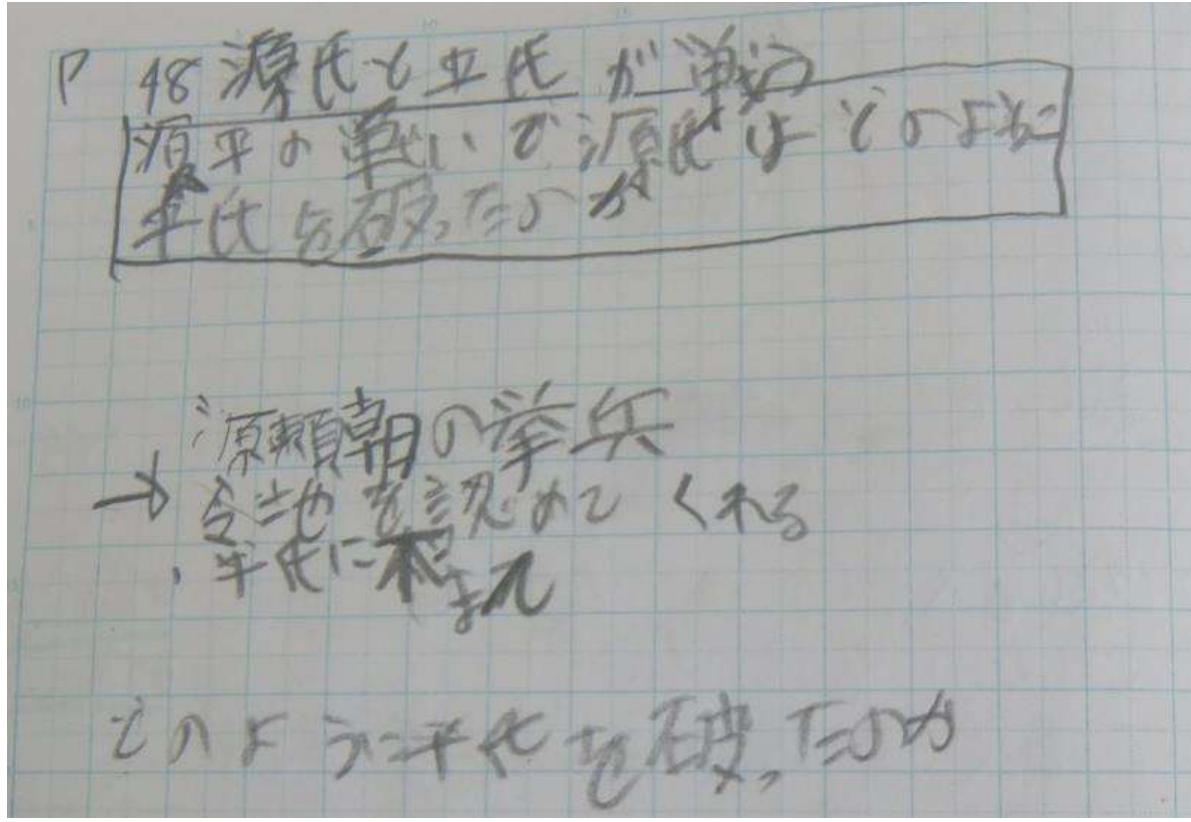 P 48 源氏と平氏が戦う
源平の戦いで源氏はどのように
平氏を破ったのか
源頼朝の挙兵
→ 令地を認めてくれる
・平氏に不
どのように平氏を破ったのか